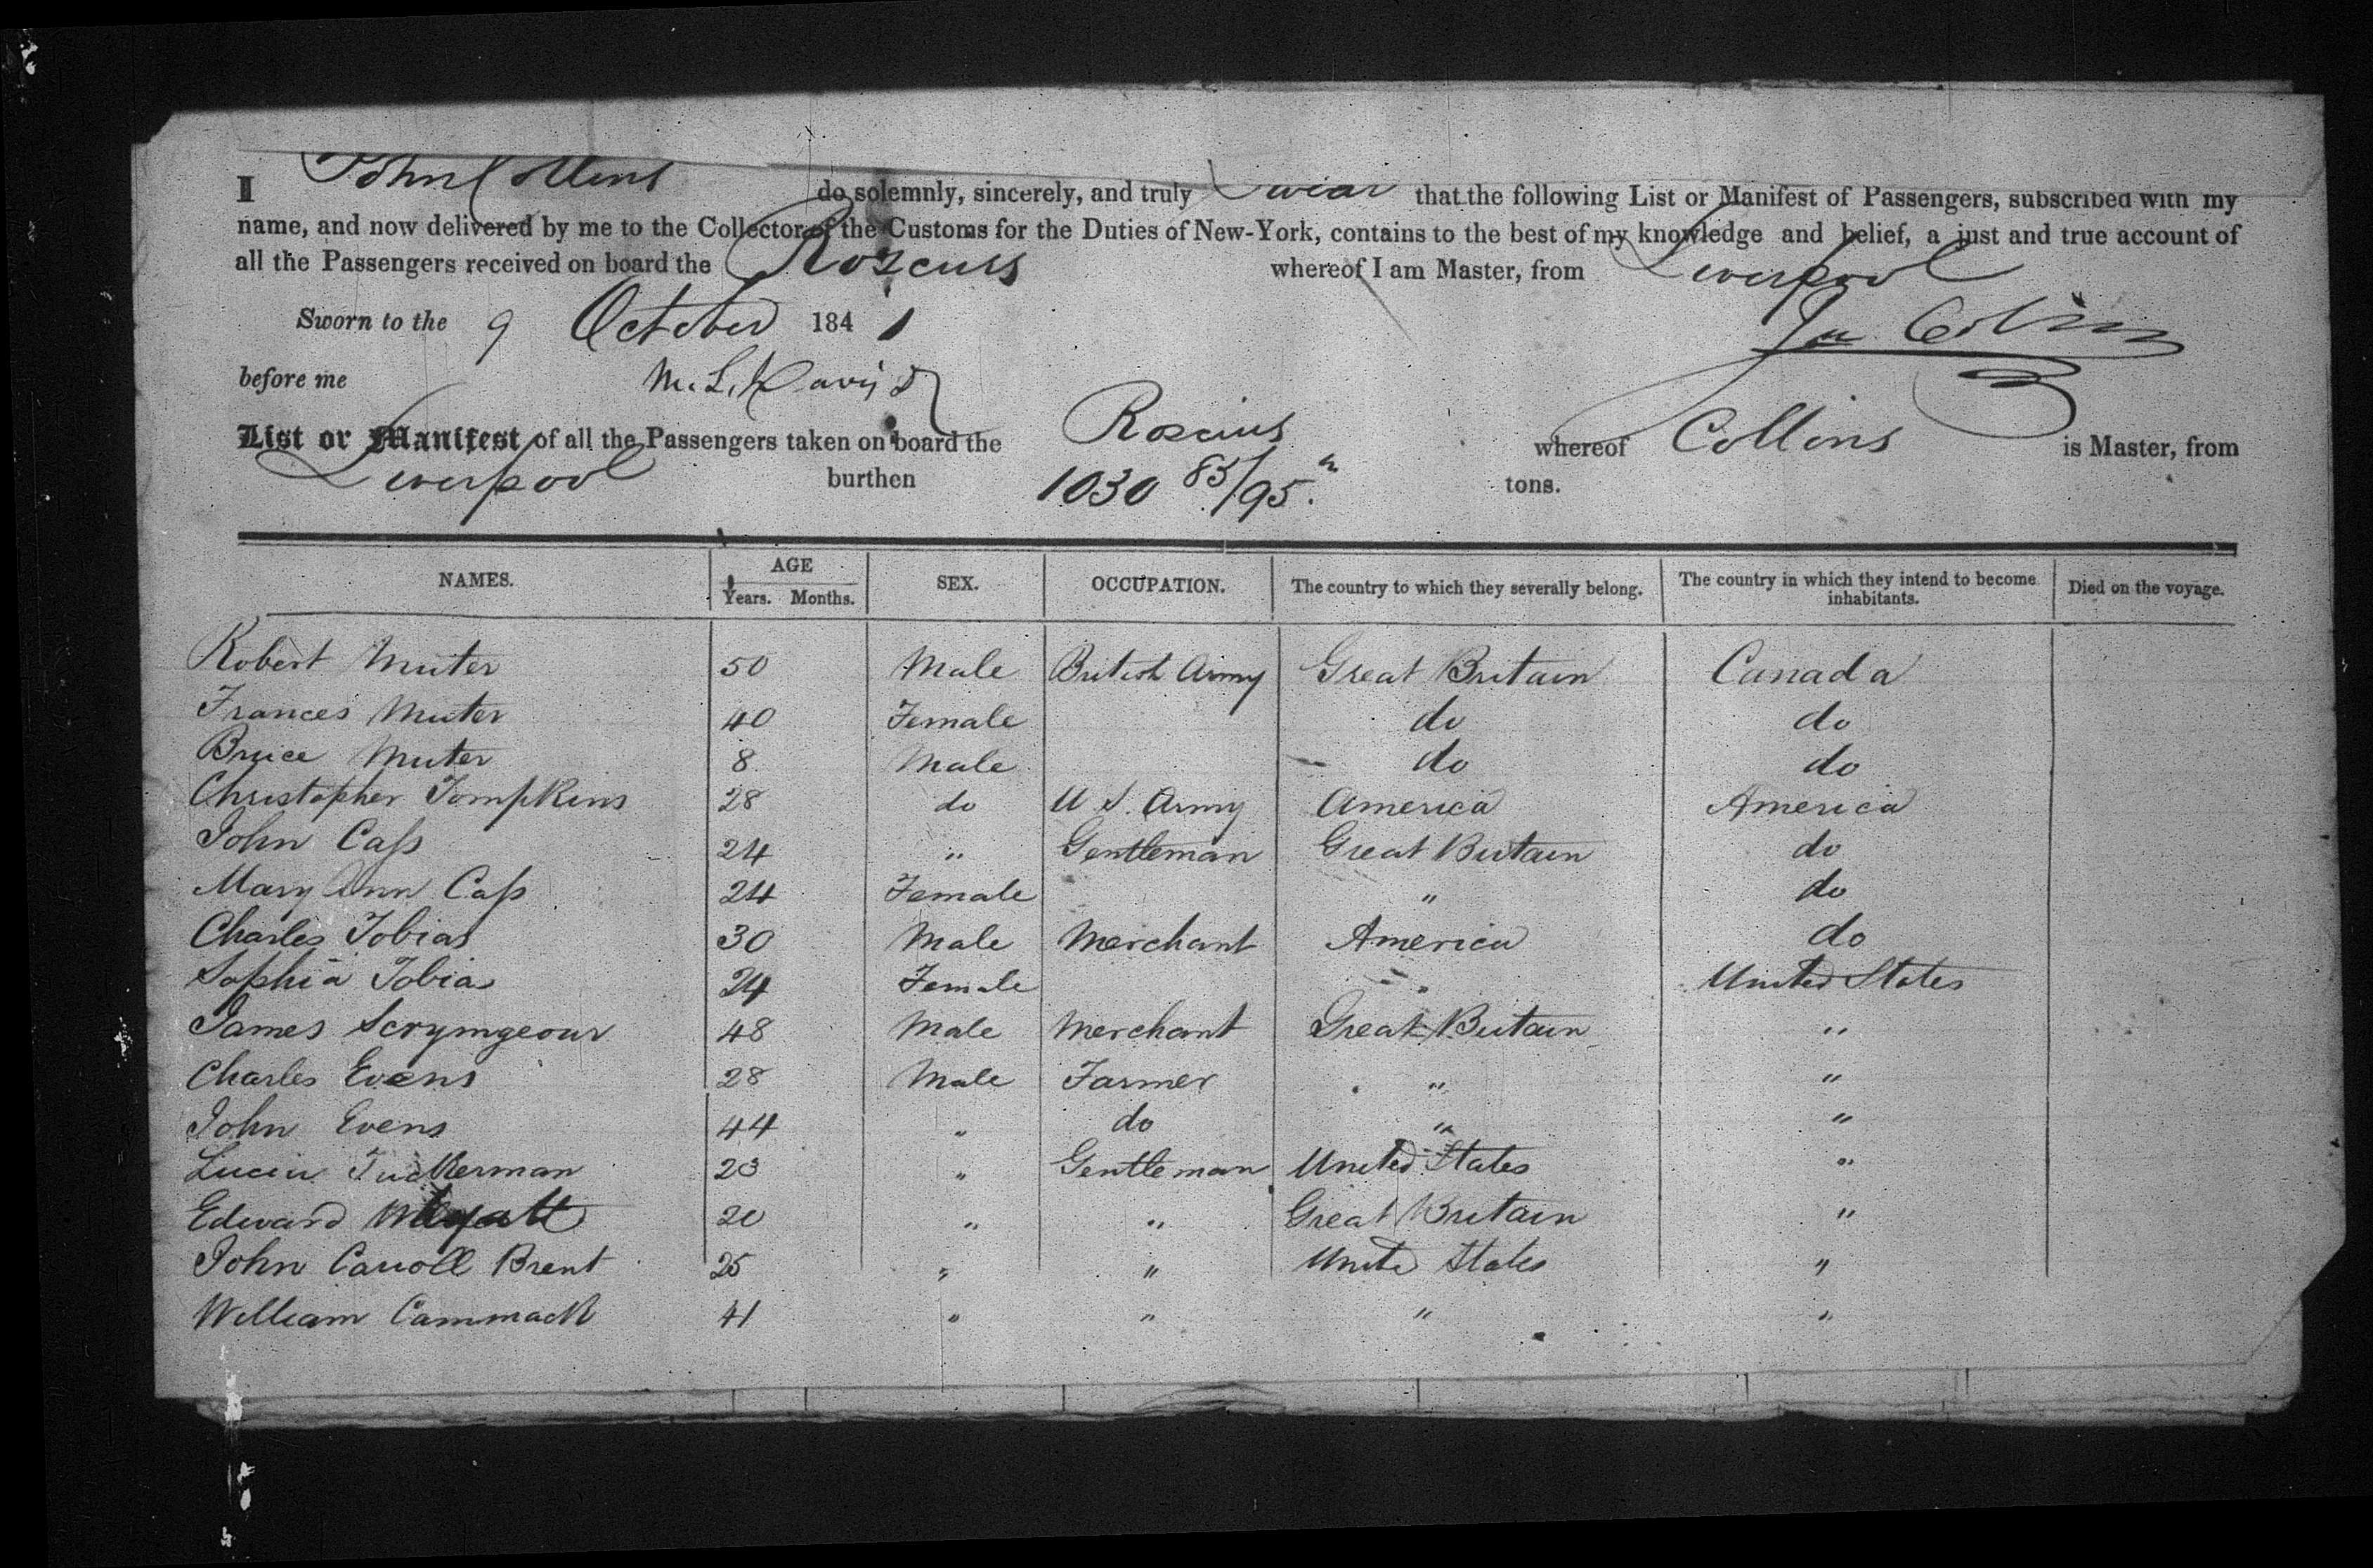 I John Collins do solemnly, sincerely, and truly Swear that the following List or Manifest of Passengers, subscribed with my
name, and now delivered by me to the Collector of the Customs for the Duties of New-York, contains to the best of my knowledge and belief, a just and true account of
all the Passengers received on board the Roscius whereof I am Master, from Liverpool
Sworn to the 9 October 1841 Jn Collins
before me M. L. Davis
List or Manifest of all the Passengers taken on board the Roscius whereof Collins is Master, from
Liverpool burthen 1030 85/95 tons.
NAMES. AGE Years. Months. SEX. OCCUPATION. The country to which they severally belong. The country in which they intend to become inhabitants. Died on the voyage.
Robert Muter 50 Male British Army Great Britain Canada
Frances Muter 40 Female do do
Bruce Muter 8 Male do do
Christopher Tompkins 28 do U S. Army America America
John Cass 24 " Gentleman Great Britain do
Mary Ann Cass 24 Female " do
Charles Tobias 30 Male Merchant America do
Sophia Tobias 24 Female " United States
James Scrymgeour 48 Male Merchant Great Britain "
Charles Evens 28 Male Farmer " "
John Evens 44 " do " "
Lucius Tuckerman 23 " Gentleman United States "
Edward 20 " " Great Britain "
John Carroll Brent 25 " " United States "
William Cammack 41 " " " "